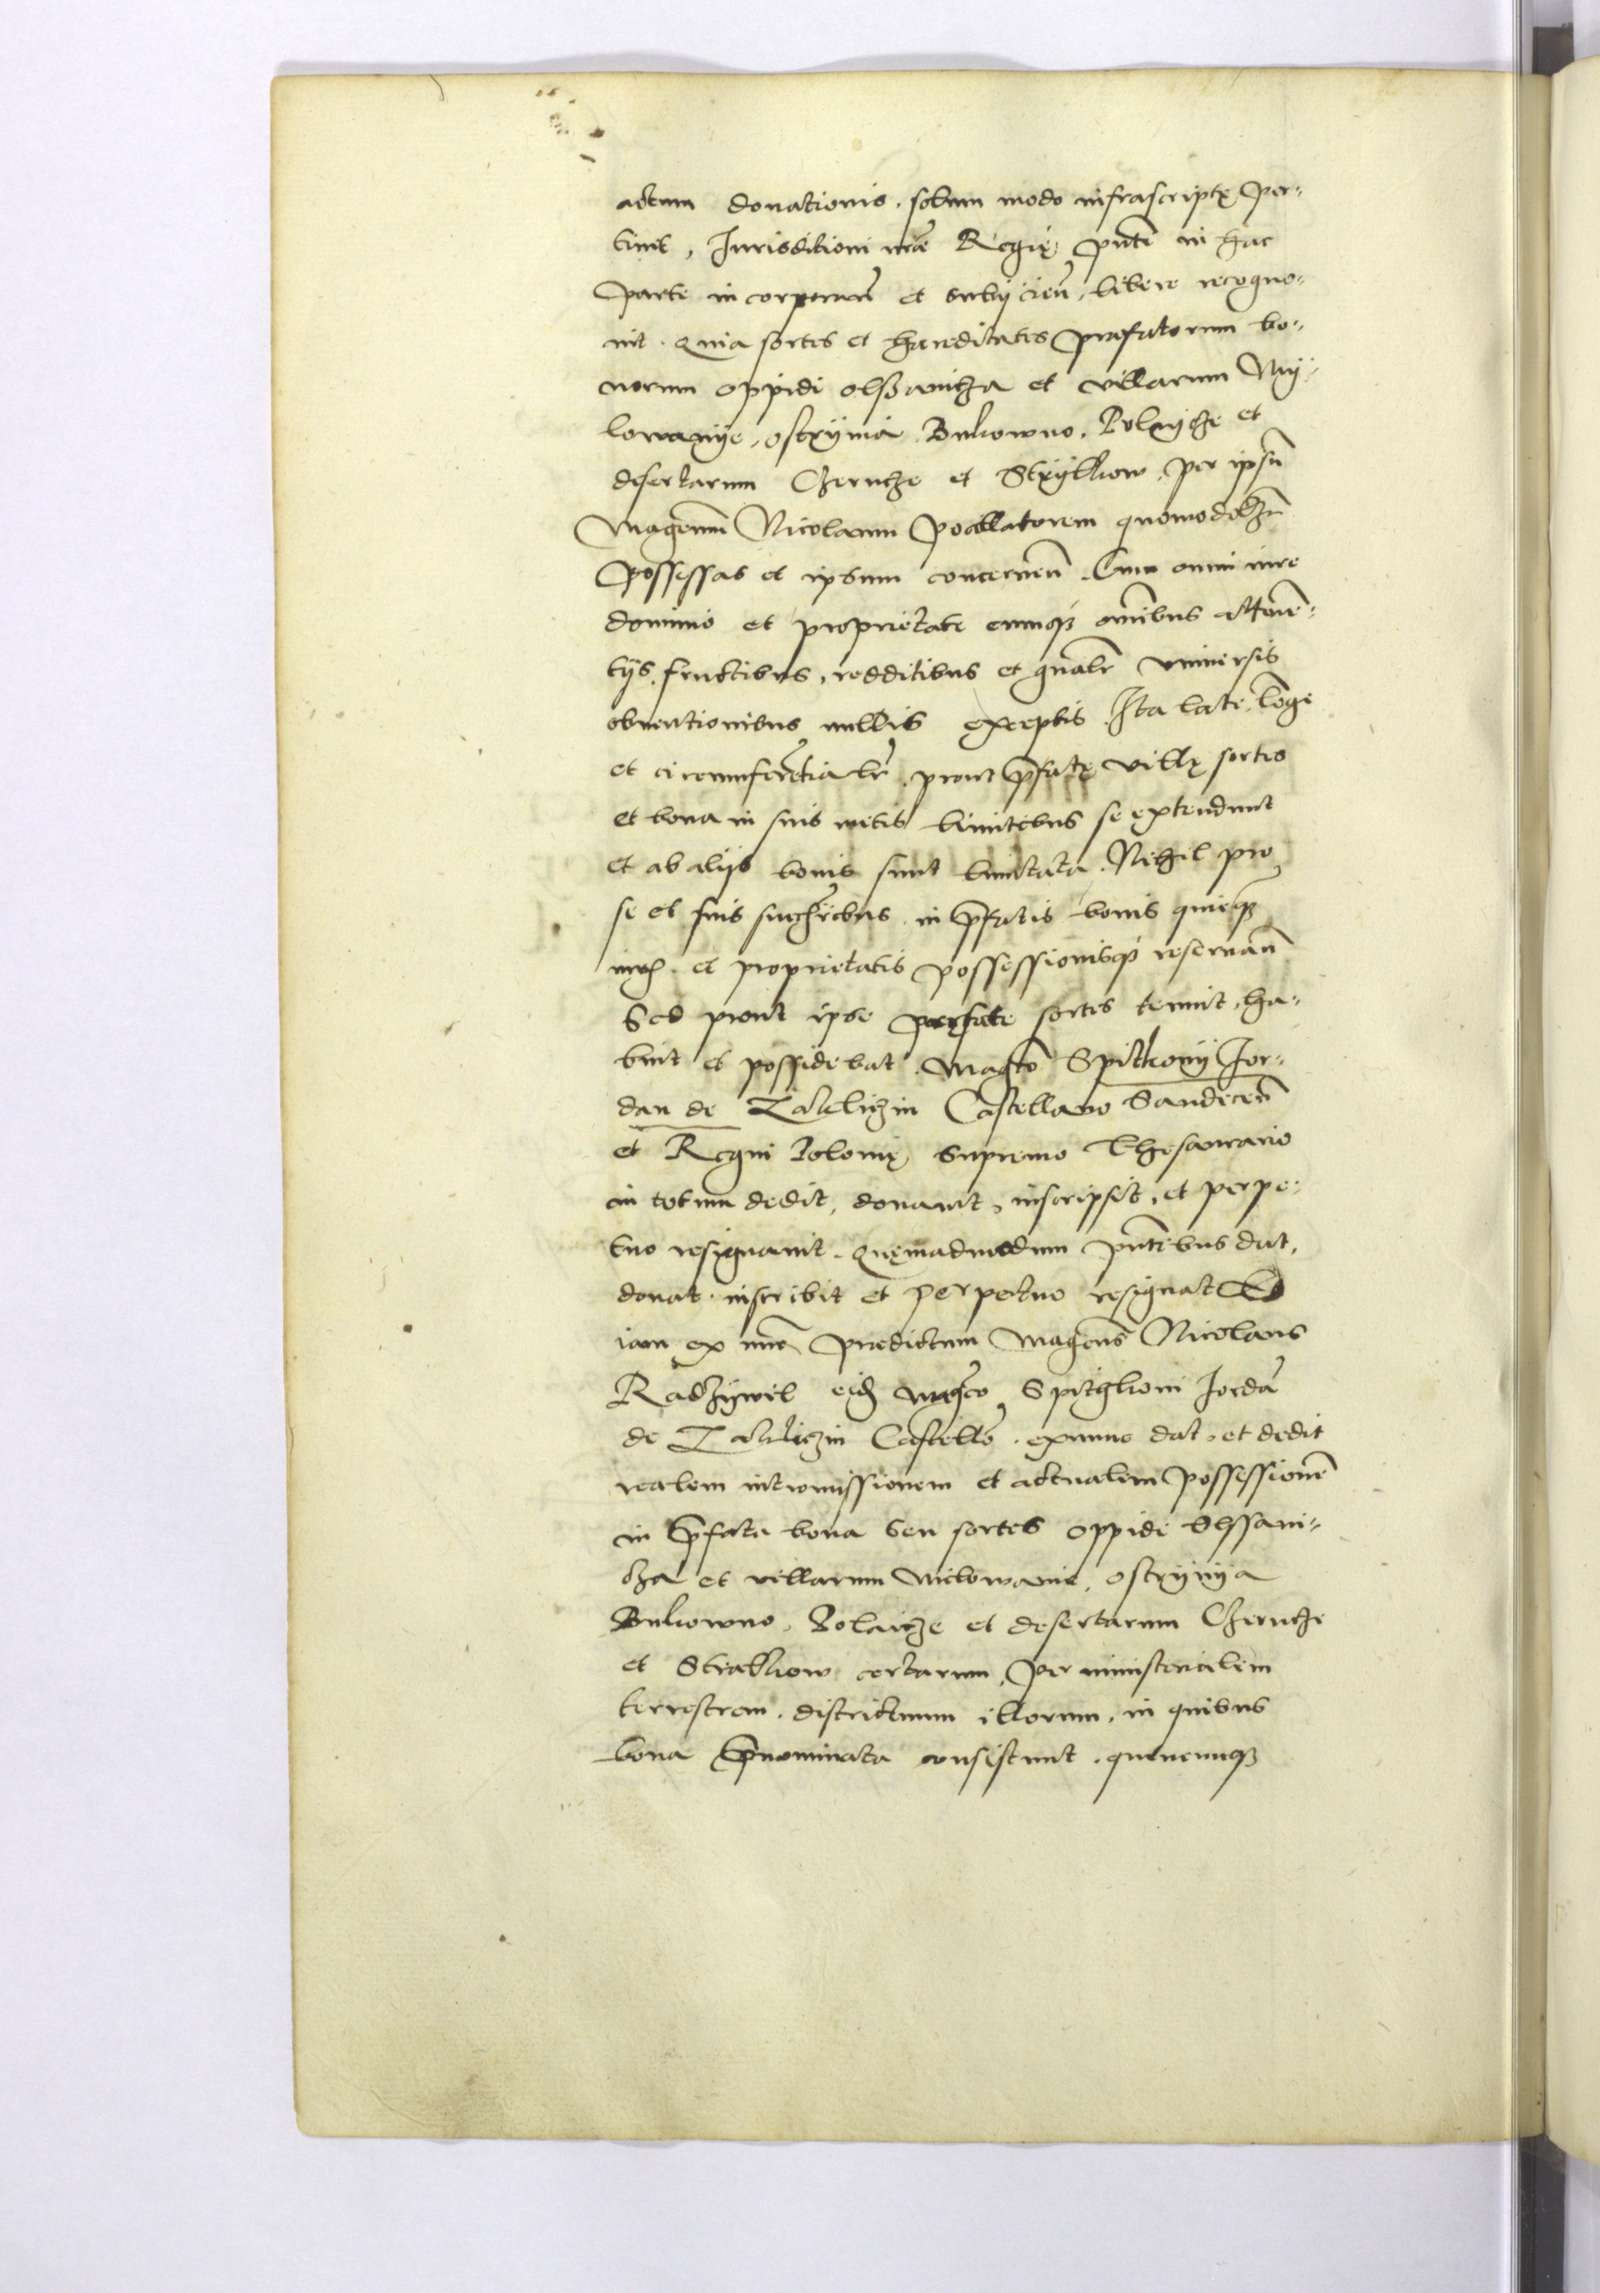 actum donationis solum modo infrascriptę per-
tinet, Jurisditioni nr̄e Regię pn̄ti in hac
parte incorporan̄ et subijcien̄, libere recogno-
uit. Quia sortes et hæreditates præfatorum bo-
norum oppidi olssanicza et villarum Mij-
lowanÿe, ostrÿnia Bukowno, Polnÿcze et
desertarum Czerncze et Strÿlkow, per ipsū
Magcum Nicolaum Pocillatorem quomodolz̄
possessas et ipsum concernen̄. Cum omni iure
dominio et proprietate cumqȝ om̄ibus attinē-
tijs, fructibus, redditibus et gn̄alr̄ vniuersis
obuentionibus nullis exceptis. Ita late, lōge
et circumferētialr̄, prout p̄fatę villę sortes
et bona in suis metis limitibus se extendunt
et ab alijs bonis sunt limitata. Nihil pro
se et suis succr̄ibus in p̄fatis bonis quicqȝ
iuris et proprietatis possessionisqȝ reseruan̄
Sed prout ipse præfate sortes tenuit, ha-
buit et possidebat. Magco Spitkonij Jor-
dan de Zakliczin Castellano Sandecen̄
et Regni Polonię supremo Thesaurario
in totum dedit, donauit, inscripsit, et perpe-
tuo resignauit. Quęmadmodum pn̄tibus dat,
donat inscribit et perpetuo resignat Et
iam ex nūc predictum Magcus Nicolaus
Radziwil eid̄ Magco Spitgkoni Jordā
de Zakliczin Castello. exnunc dat et dedit
realem intromissionem et actualem possessionē
in p̄fata bona seu sortes oppidi Olssani-
cza et villarum Milowanie, ostrÿnÿa
Bukowno, Polnicze et desertarum Czerncze
et Strilkow certarum, per ministerialem
terrestrem, districtuum illorum, in quibus
bona p̄nominata consistunt, quemcumqȝ